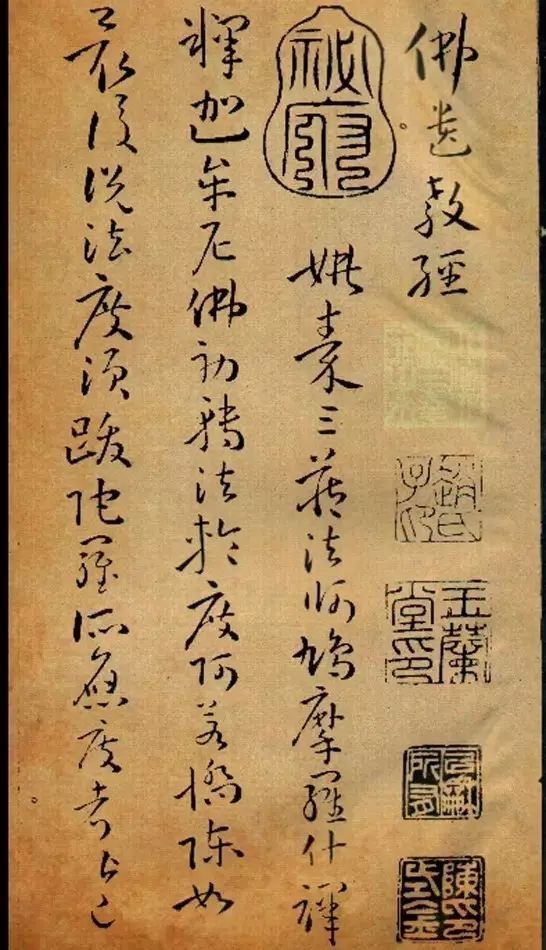 佛遗教經
姚秦三藏法師鳩摩羅什譯
釋迦牟尼佛初轉法輪度阿若憍陳如
最後說法度須跋陀羅所應度者皆已
秘府
趙氏子印
玉蘭堂印